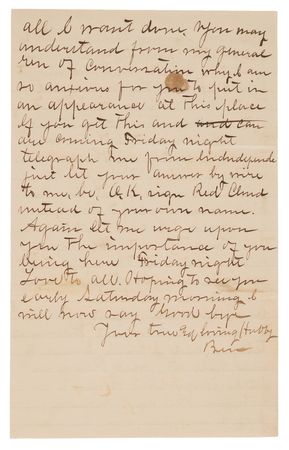 all I want done. You may
understand from my general
run of conversation why I am
so anxious for you to put in
an appearance at this place
If you get this and and can
are coming Friday night
telegraph me from Independence
just let your answer by wire
to me, be, O,K, sign Red Cloud
instead of your own name.
Again let me urge upon
you the importance of you
being here Friday night
Love to all. Hoping to see you
early Saturday morning I
will now say Good bye
Your true & loving Hubby
Ben